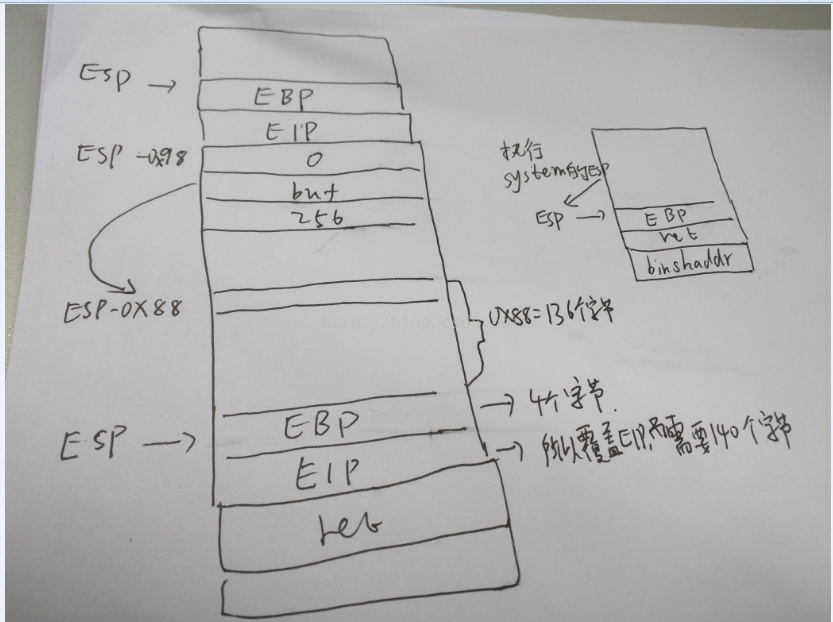 ESP →
EBP
EIP
ESP-0x98
0
buf
256
ESP-0X88
0X88=136个字节
EBP
→ 4个字节.
ESP →
EIP
→ 所以覆盖EIP,需要140个字节
ret
执行
system的ESP
ESP →
EBP
ret
binshaddr